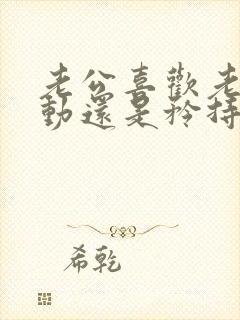 老公喜歡老
動還是矜持
希乾